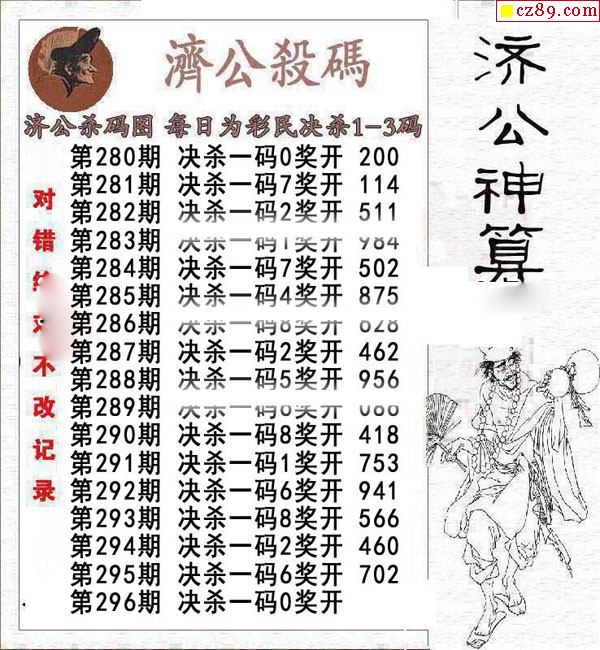 cz89.com
濟公殺碼
济公杀码图 每日为彩民决杀1-3码
第280期 决杀一码0奖开 200
第281期 决杀一码7奖开 114
第282期 决杀一码2奖开 511
第283期 决杀一码1奖开 984
第284期 决杀一码7奖开 502
第285期 决杀一码4奖开 875
第286期 决杀一码8奖开 628
第287期 决杀一码2奖开 462
第288期 决杀一码5奖开 956
第289期 决杀一码奖开 086
第290期 决杀一码8奖开 418
第291期 决杀一码1奖开 753
第292期 决杀一码6奖开 941
第293期 决杀一码8奖开 566
第294期 决杀一码2奖开 460
第295期 决杀一码6奖开 702
第296期 决杀一码0奖开
对错不改记录
济公神算